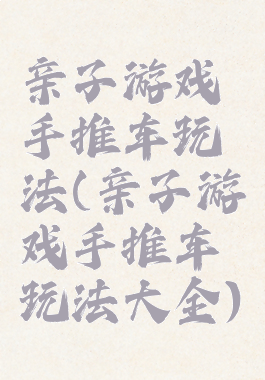 亲子游戏
手推车玩
法(亲子游
戏手推车
玩法大全)